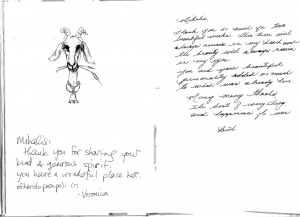 Mihalis:
Thank you for sharing your
kind & generous spirit.
you have a wonderful place here.
efharisto parapoli
-Veronica
Mihalis
Thank you so much for two
beautiful weeks. This town will
always remain in my heart and
the beauty will always remain
in my eyes.
You and your beautiful
personality added so much
to what was already here.
Many many thanks
The best of everything
and happiness for ever